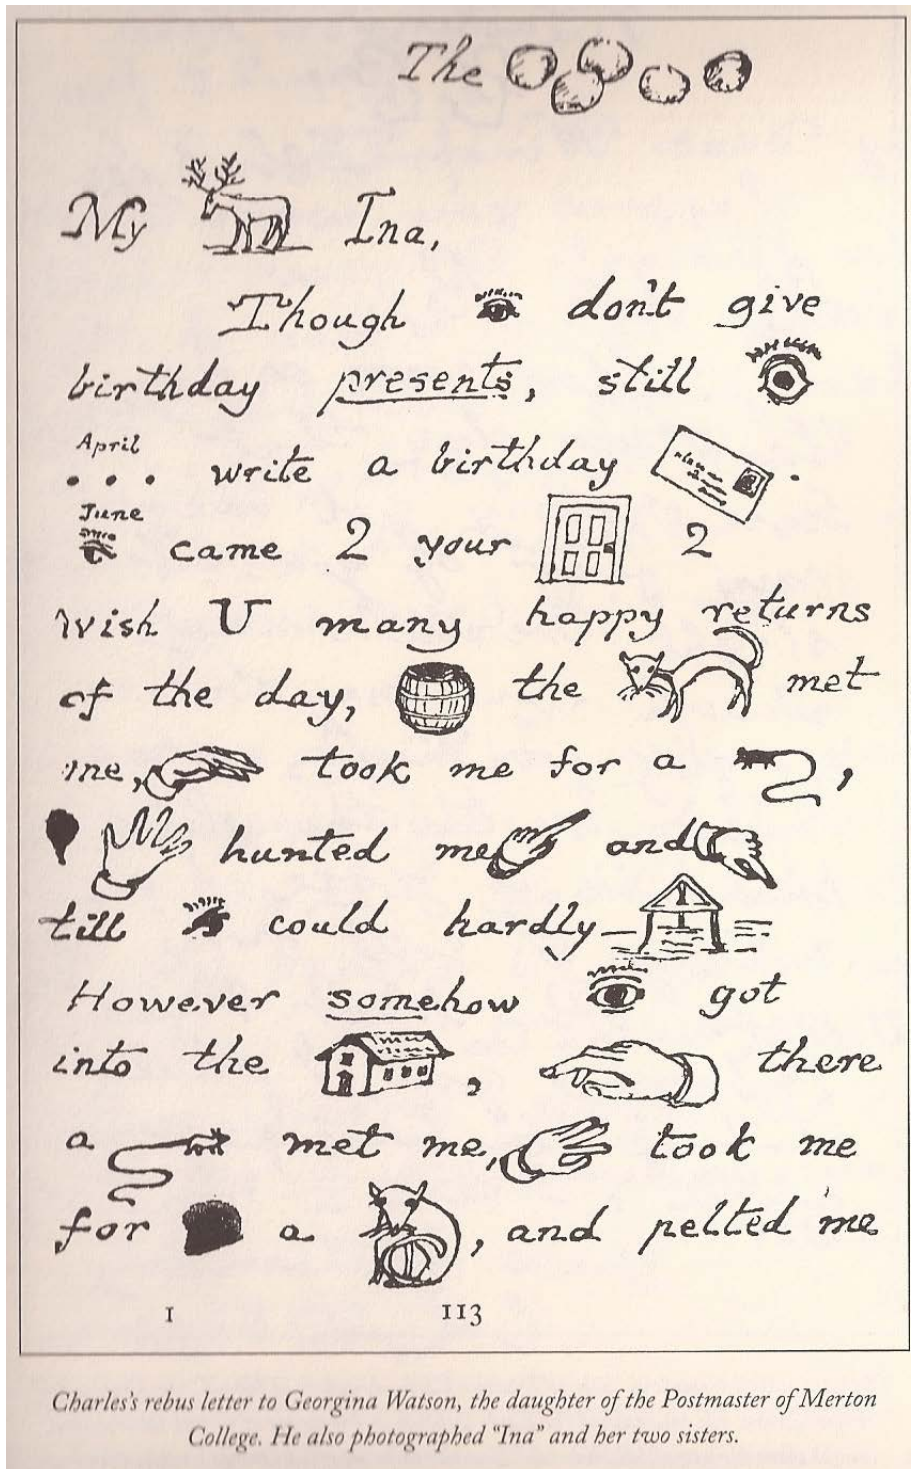 The
My Ina,
Though don't give
birthday presents, still
April
. . . write a birthday .
June
came 2 your 2
wish U many happy returns
of the day, the met
me, took me for a ,
hunted me and
till could hardly —
However somehow got
into the , there
a met me, took me
for a , and pelted me
1 113
Charles's rebus letter to Georgina Watson, the daughter of the Postmaster of Merton
College. He also photographed "Ina" and her two sisters.